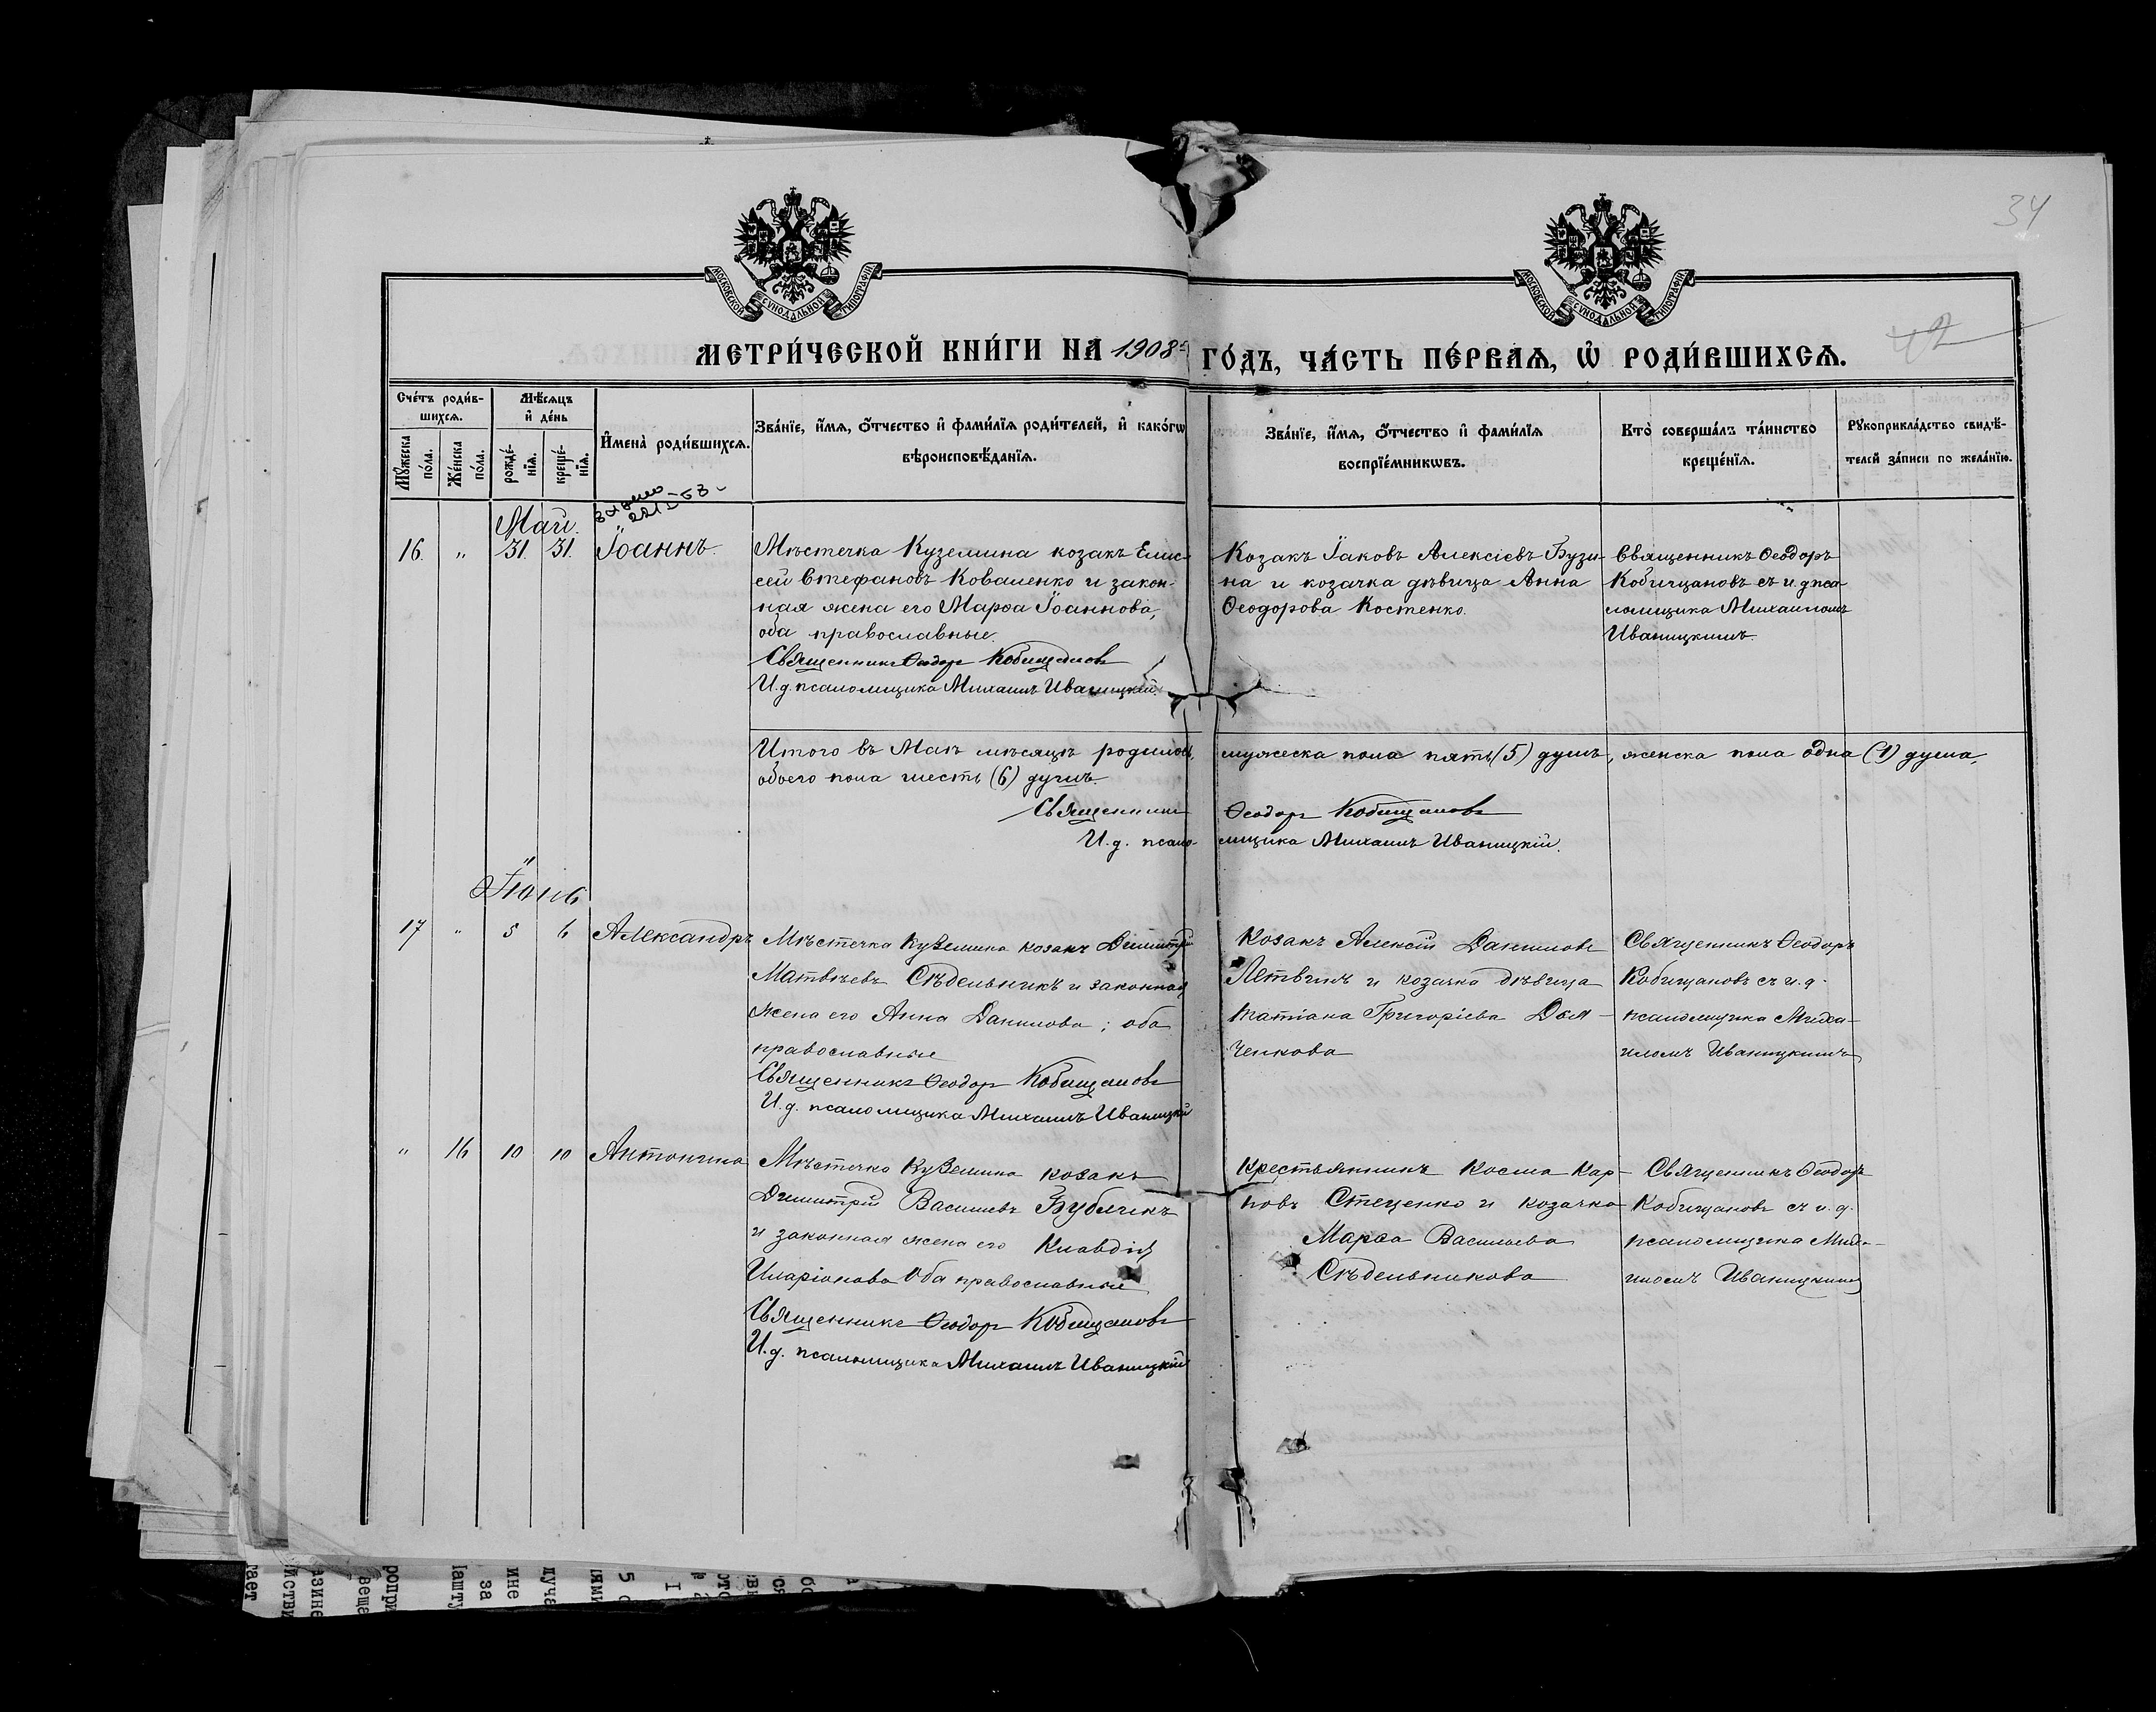 34
МОСКОВСКОЙ СѴНОДАЛЬНОЙ ТИПОГРАФІИ
МОСКОВСКОЙ СѴНОДАЛЬНОЙ ТИПОГРАФІИ
МЕТРИ́ЧЕСКОЙ КНИ́ГИ НА 1908 ГО́ДЪ, ЧА́СТЬ ПЕ́РВАѦ, Ѡ҆ РОДИ́ВШИХСѦ.
Сче́тъ роди́в-
шихсѧ.
Мꙋ́жеска по́ла.
Же́нска по́ла.
Мѣ́сѧцъ
и҆ де́нь
рожде́-
нїѧ.
креще́-
нїѧ.
И҆мена̀ роди́вшихсѧ.
Зва́нїе, и҆́мѧ, ѻ҆́тчество и҆ фами́лїѧ роди́телей, и҆ како́гѡ
вѣроисповѣ́данїѧ.
Зва́нїе, и҆́мѧ, ѻ҆́тчество и҆ фами́лїѧ
воспрїе́мникѡвъ.
Кто̀ соверша́лъ та́инство
креще́нїѧ.
Рꙋкоприкла́дство свидѣ́-
телей за́писи по жела́нїю.
Май.
16. " 31. 31. Іоаннъ.
Мѣстечка Куземина козакъ Елис-
сей Стефановъ Коваленко и закон-
ная жена его Марѳа Іоаннова,
оба православные.
Священникъ Ѳеодоръ Кобищановъ
И.д. псаломщика Михаилъ Иваницкій
Козакъ Іаковъ Алексіевъ Бузи-
на и козачка дѣвица Анна
Ѳеодорова Костенко.
Священникъ Ѳеодоръ
Кобищановъ съ и.д. пса-
ломщика Михаиломъ
Иваницкимъ.
Итого въ Маѣ мѣсяцѣ родилось мужеска пола пять (5) душъ, женска пола одна (1) душа,
обоего пола шесть (6) душъ.
Священникъ Ѳеодоръ Кобищановъ
И.д. псаломщика Михаилъ Иваницкій.
Іюнь
17 " 5 6 Александръ
Мѣстечка Куземина козакъ Димитрій
Матвѣевъ Сѣдельникъ и законная
жена его Анна Данилова; оба
православные
Священникъ Ѳеодоръ Кобищановъ
И.д. псаломщика Михаилъ Иваницкій
Козакъ Алексій Даниловъ
Летвинъ и козачка дѣвица
Татіана Григоріева Дья-
ченкова
Священникъ Ѳеодоръ
Кобищановъ съ и.д.
псаломщика Миха-
иломъ Иваницкимъ
" 16 10 10 Антонина
Мѣстечка Куземина козакъ
Димитрій Васильевъ Бубликъ
и законная жена его Клавдія
Иларіонова Оба православные
Священникъ Ѳеодоръ Кобищановъ
И.д. псаломщика Михаилъ Иваницкій
Крестьянинъ Косма Кар-
повъ Стеценко и козачка
Марѳа Васильева
Сѣдельникова
Священникъ Ѳеодоръ
Кобищановъ съ и.д.
псаломщика Миха-
иломъ Иваницкимъ